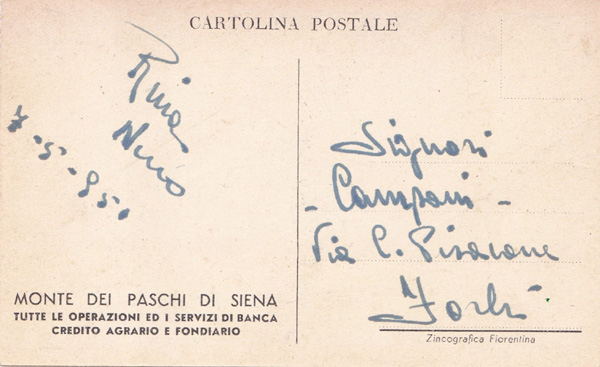 CARTOLINA POSTALE
Rina
Nino
7-5-950
MONTE DEI PASCHI DI SIENA
TUTTE LE OPERAZIONI ED I SERVIZI DI BANCA
CREDITO AGRARIO E FONDIARIO
Signori
- Camponi -
Via C. Pisacane
Forlì
Zincografica Fiorentina